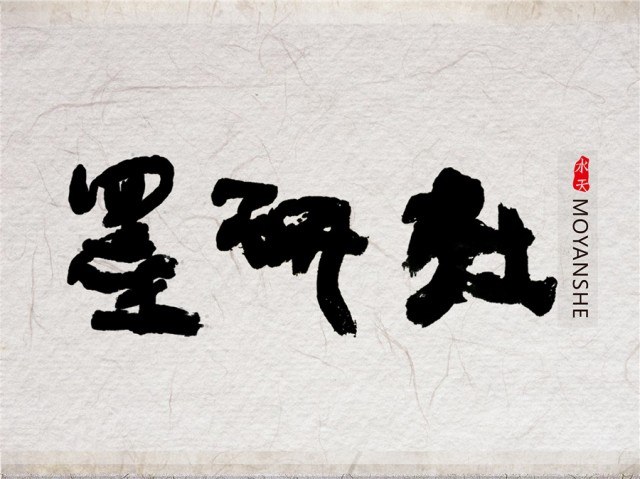 墨研社
水天
MOYANSHE